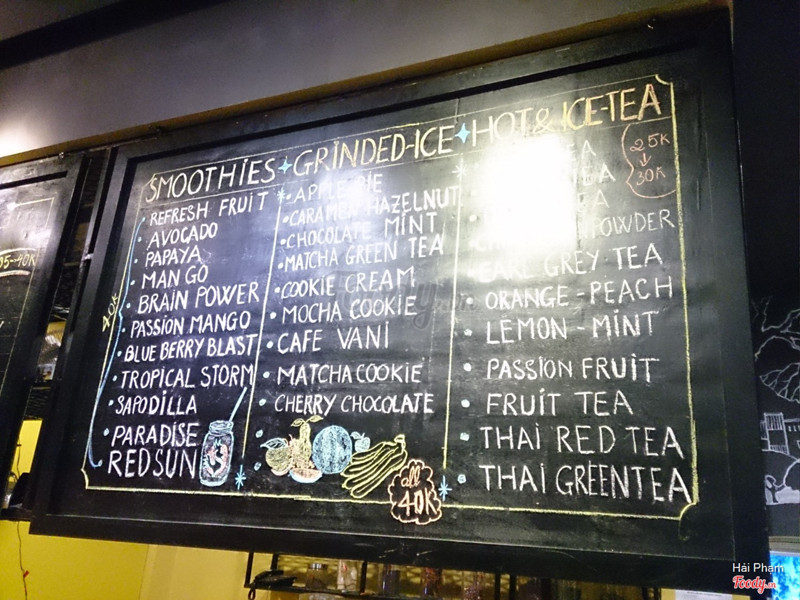 SMOOTHIES GRINDED-ICE HOT & ICE-TEA
25K
30K
40K
REFRESH FRUIT
AVOCADO
PAPAYA
MANGO
BRAIN POWER
PASSION MANGO
BLUEBERRY BLAST
TROPICAL STORM
SAPODILLA
PARADISE
RED SUN
APPLE PIE
CARAMEN HAZELNUT
CHOCOLATE MINT
MATCHA GREEN TEA
COOKIE CREAM
MOCHA COOKIE
CAFE VANI
MATCHA COOKIE
CHERRY CHOCOLATE
all
40K
TEA
POWDER
EARL GREY TEA
ORANGE - PEACH
LEMON - MINT
PASSION FRUIT
FRUIT TEA
THAI RED TEA
THAI GREEN TEA
35-40K
Hải Phạm
Foody.vn